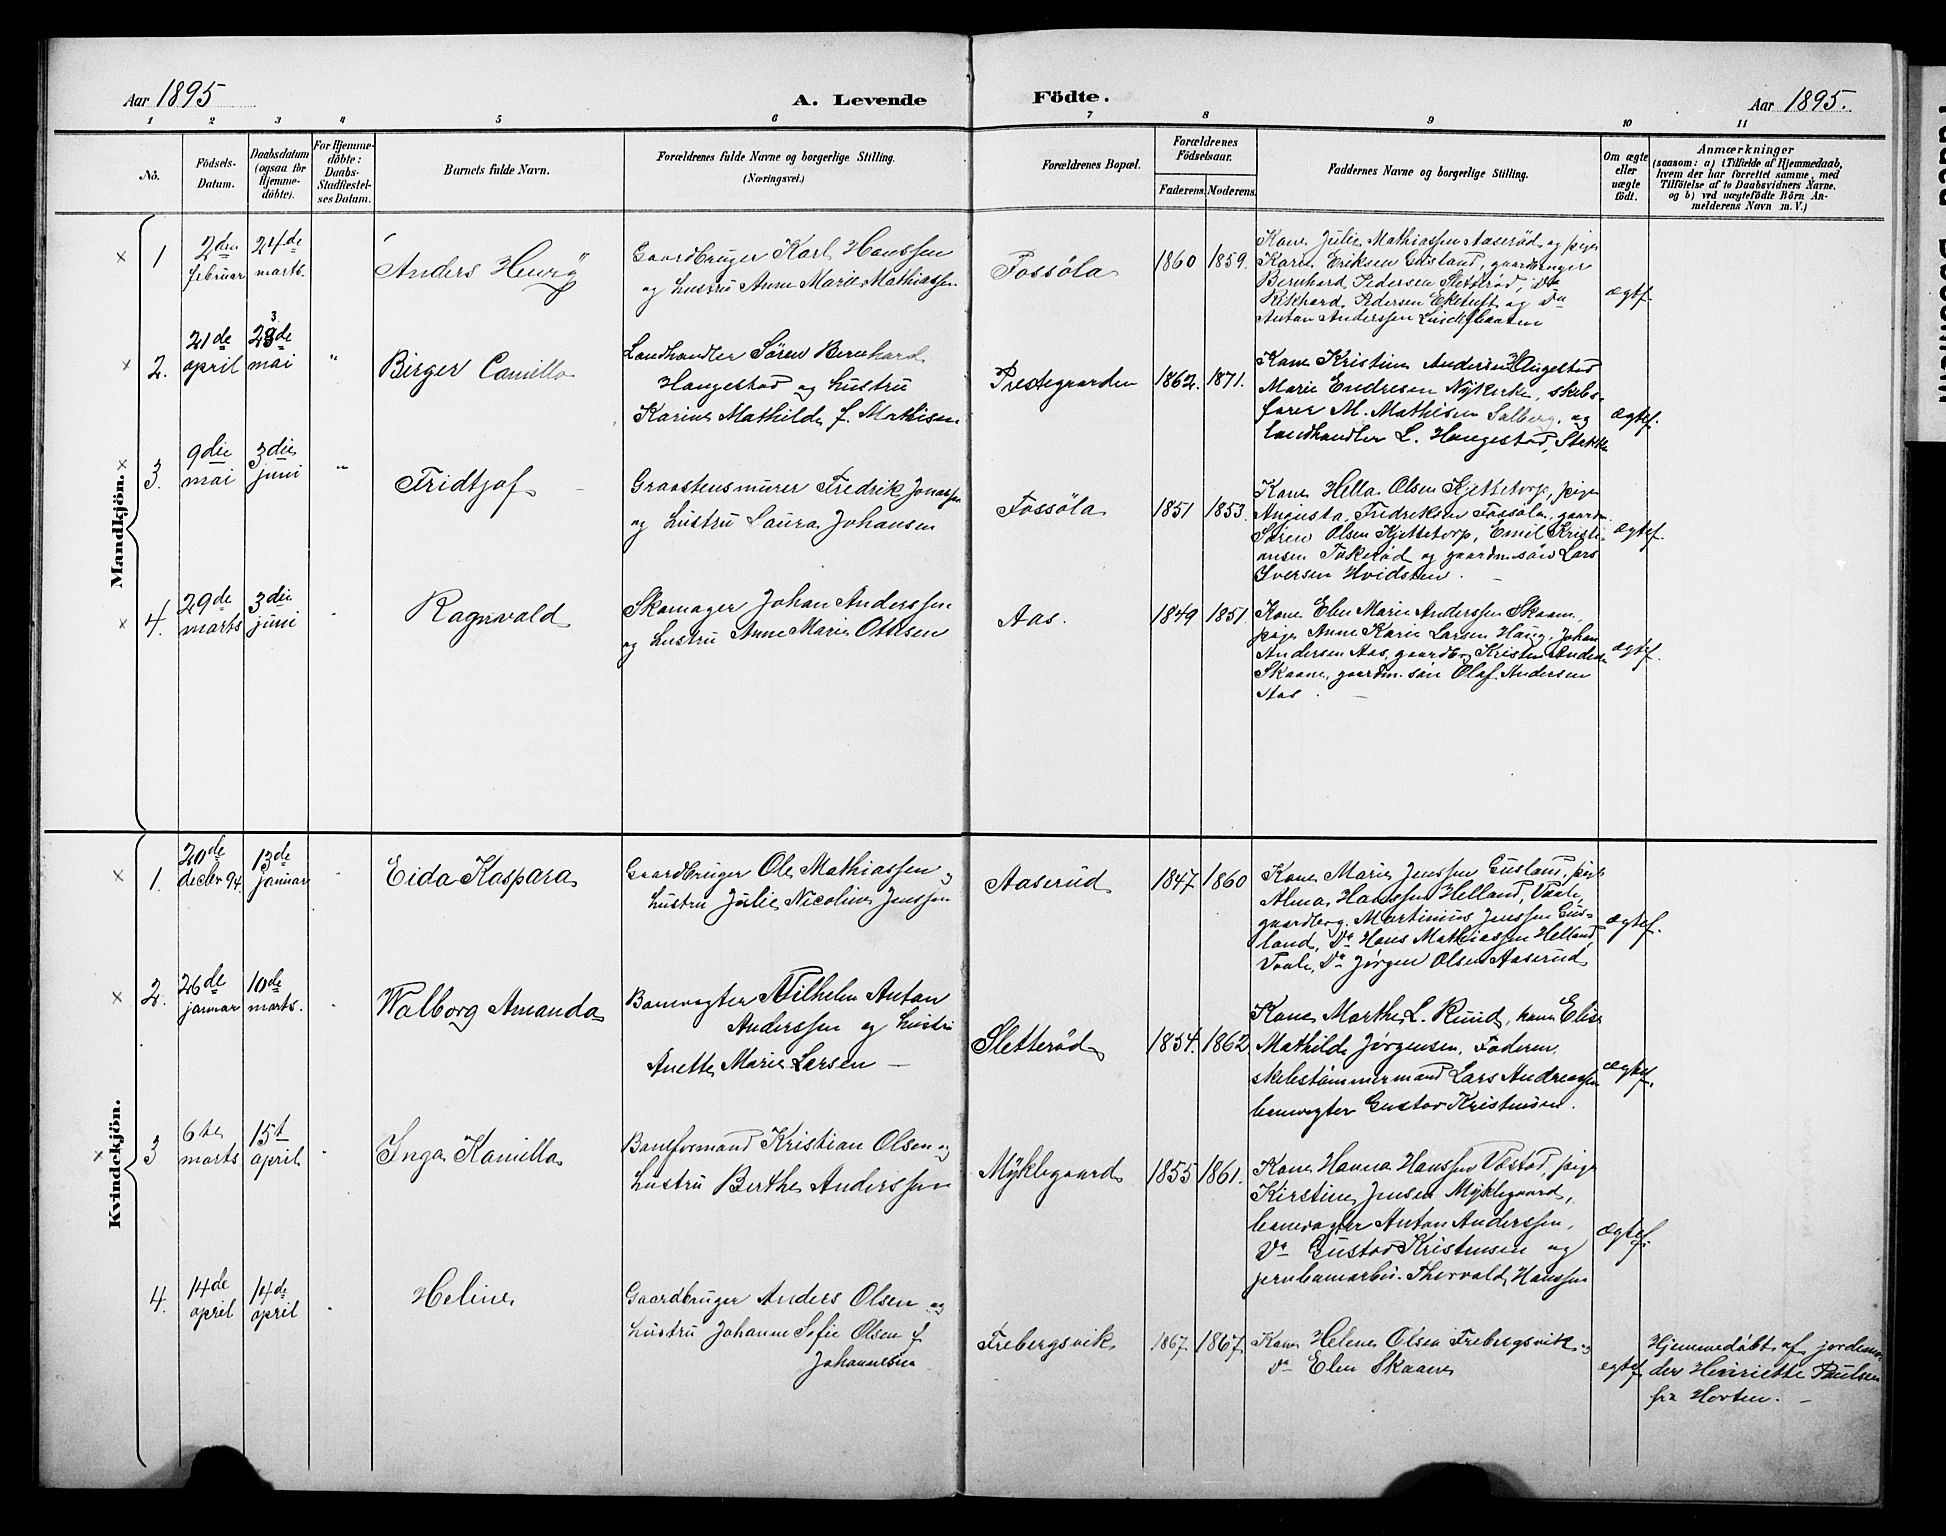 Aar 1895
A. Levende
Födte.
Aar 1895.
1 2 3 4 5 6 7 8 9 10 11
No.
Födsels-
Datum.
Daabsdatum
(ogsaa for
Hjemme-
döbte).
For Hjemme-
döbte:
Daabs-
Stadfæstel-
ses Datum.
Barnets fulde Navn.
Forældrenes fulde Navne og borgerlige Stilling.
(Næringsvei.)
Forældrenes Bopæl.
Forældrenes
Födselsaar.
Faderens. Moderens.
Faddernes Navne og borgerlige Stilling.
Om ægte
eller
uægte
födt.
Anmærkninger
(saasom: a) i Tilfælde af Hjemmedaab,
hvem der har forrettet samme, med
Tilföielse af to Daabsvidners Navne.
og b) ved uægtefödte Börn An-
melderens Navn m. V.)
Mandkjön.
1
2den
februar
24de
marts.
Anders Henry
Gaardbruger Karl Hanssen
og hustru Anne Marie Mathiassen
Fossøla
1860 1859.
Kone Julie Mathiassen Aaserød og pige
Karie Eriksen Gusland, gaardbruger
Bernhard Pedersen Sletterød, Do
Rikhard Pedersen Ekstuft og Do
Anton Anderssen
ægtf.
2.
21de
april
23de
mai
"
Birger Camillo
Landhandler Søren Bernhard
Hangestad og hustru
Karine Mathilde f. Mathisen.
Prestegaarden
1862. 1871.
Kone Kristine Andersen Haugestad
Marie Endresen Nykirke, skibs-
fører M. Mathisen Solberg, og
landhandler L. Hangestad,
ægtef.
3.
9de
mai
3die
juni
"
Fridtjof
Graastensmurer Fredrik Jonassen
og hustru Laura Johansen
Fossøla
1851 1853.
Kone Hella Olsen Kjettetorp, pige
Augusta Fredriksen Fossøla, gaardm.
Søren Olsen Kjettetorp, Emil Kristi-
ansen Takerød og gaardm.søn Lars
Iversen Hvidsten.
ægtef.
4.
29de
marts
3die
juni
Ragnvald
Skomager Johan Anderssen
og hustru Anne Marie Ottesen
Aas.
1849 1851.
Kone Elen Marie Anderssen Skaane,
pige Anne Karie Larsen Haug, Johan
Andersen Aas, gaardbr. Kristen Anders.
Skaane, gaardm. søn Olaf Andersen
Aas.
ægtef.
Kvindekjön.
1.
20de
decbr 94.
13de
januar
Eida Kaspara
Gaardbruger Ole Mathiassen og
hustru Julie Nicoline Jenssen
Aaserud
1847 1860
Kone Marie Jenssen Gusland, pige
Alma Hanssen Helland, Vaale,
gaardbrg. Martinius Jenssen Gus-
land, Do Hans Mathiassen Helland
Vaale, Do Jørgen Olsen Aaserud
ægtef.
2.
26de
januar
10de
marts.
Walborg Amanda
Banevogter Vilhelm Anton
Anderssen og hustru
Anette Marie Larsen
Sletterød
1854. 1862
Kone Marthe L. Ruud, kone Elise
Mathilde Jørgensen, Faderen,
skibstømmermand Lars Andreassen
banevogter Gustav Kristensen.
ægtef.
3
6te
marts
15t
april
Inga Kamilla
Baneformand Kristian Olsen og
hustru Berthe Anderssen
Myklegaard
1855 1861.
Kone Hanna Hanssen Vøstad, pige
Kirstine Jensen Myklegaard,
banevogter Anton Anderssen,
Do Gustav Kristensen og
jernbanearbei. Thorvald Hanssen
ægtef.
4.
14de
april
14de
april
Heline
Gaardbruger Anders Olsen og
hustru Johanne Sofie Olsen f.
Johannesen
Frebergsvik
1867. 1867.
Kone Helene Olsen Frebergsvik og
Do Elen Skaane
ægtef.
Hjemmedøbt af jordemo-
der Henriette Paulsen
fra Horten.